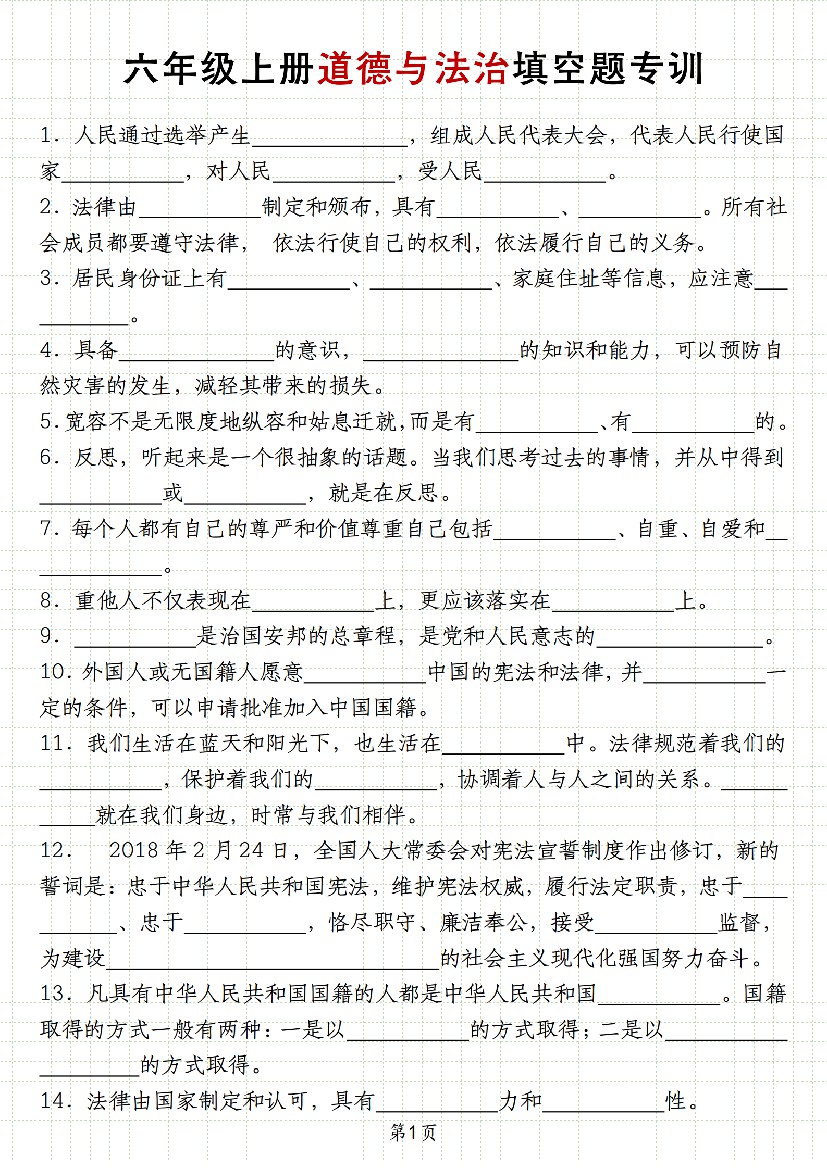 六年级上册道德与法治填空题专训
1. 人民通过选举产生____________,组成人民代表大会,代表人民行使国
家__________,对人民__________,受人民__________。
2. 法律由__________制定和颁布,具有__________、__________。所有社
会成员都要遵守法律, 依法行使自己的权利,依法履行自己的义务。
3. 居民身份证上有__________、__________、家庭住址等信息,应注意___
_______。
4. 具备____________的意识,____________的知识和能力,可以预防自
然灾害的发生,减轻其带来的损失。
5. 宽容不是无限度地纵容和姑息迁就,而是有__________、有__________的。
6. 反思,听起来是一个很抽象的话题。当我们思考过去的事情,并从中得到
__________或__________,就是在反思。
7. 每个人都有自己的尊严和价值尊重自己包括__________、自重、自爱和__
__________。
8. 重他人不仅表现在__________上,更应该落实在__________上。
9. __________是治国安邦的总章程,是党和人民意志的_____________。
10. 外国人或无国籍人愿意__________中国的宪法和法律,并__________一
定的条件,可以申请批准加入中国国籍。
11. 我们生活在蓝天和阳光下,也生活在__________中。法律规范着我们的
__________,保护着我们的__________,协调着人与人之间的关系。_____
_____就在我们身边,时常与我们相伴。
12. 2018 年 2 月 24 日,全国人大常委会对宪法宣誓制度作出修订,新的
誓词是:忠于中华人民共和国宪法,维护宪法权威,履行法定职责,忠于____
______、忠于__________,恪尽职守、廉洁奉公,接受__________监督,
为建设___________________________的社会主义现代化强国努力奋斗。
13. 凡具有中华人民共和国国籍的人都是中华人民共和国__________。国籍
取得的方式一般有两种:一是以__________的方式取得;二是以__________
________的方式取得。
14. 法律由国家制定和认可,具有__________力和__________性。
第 1 页